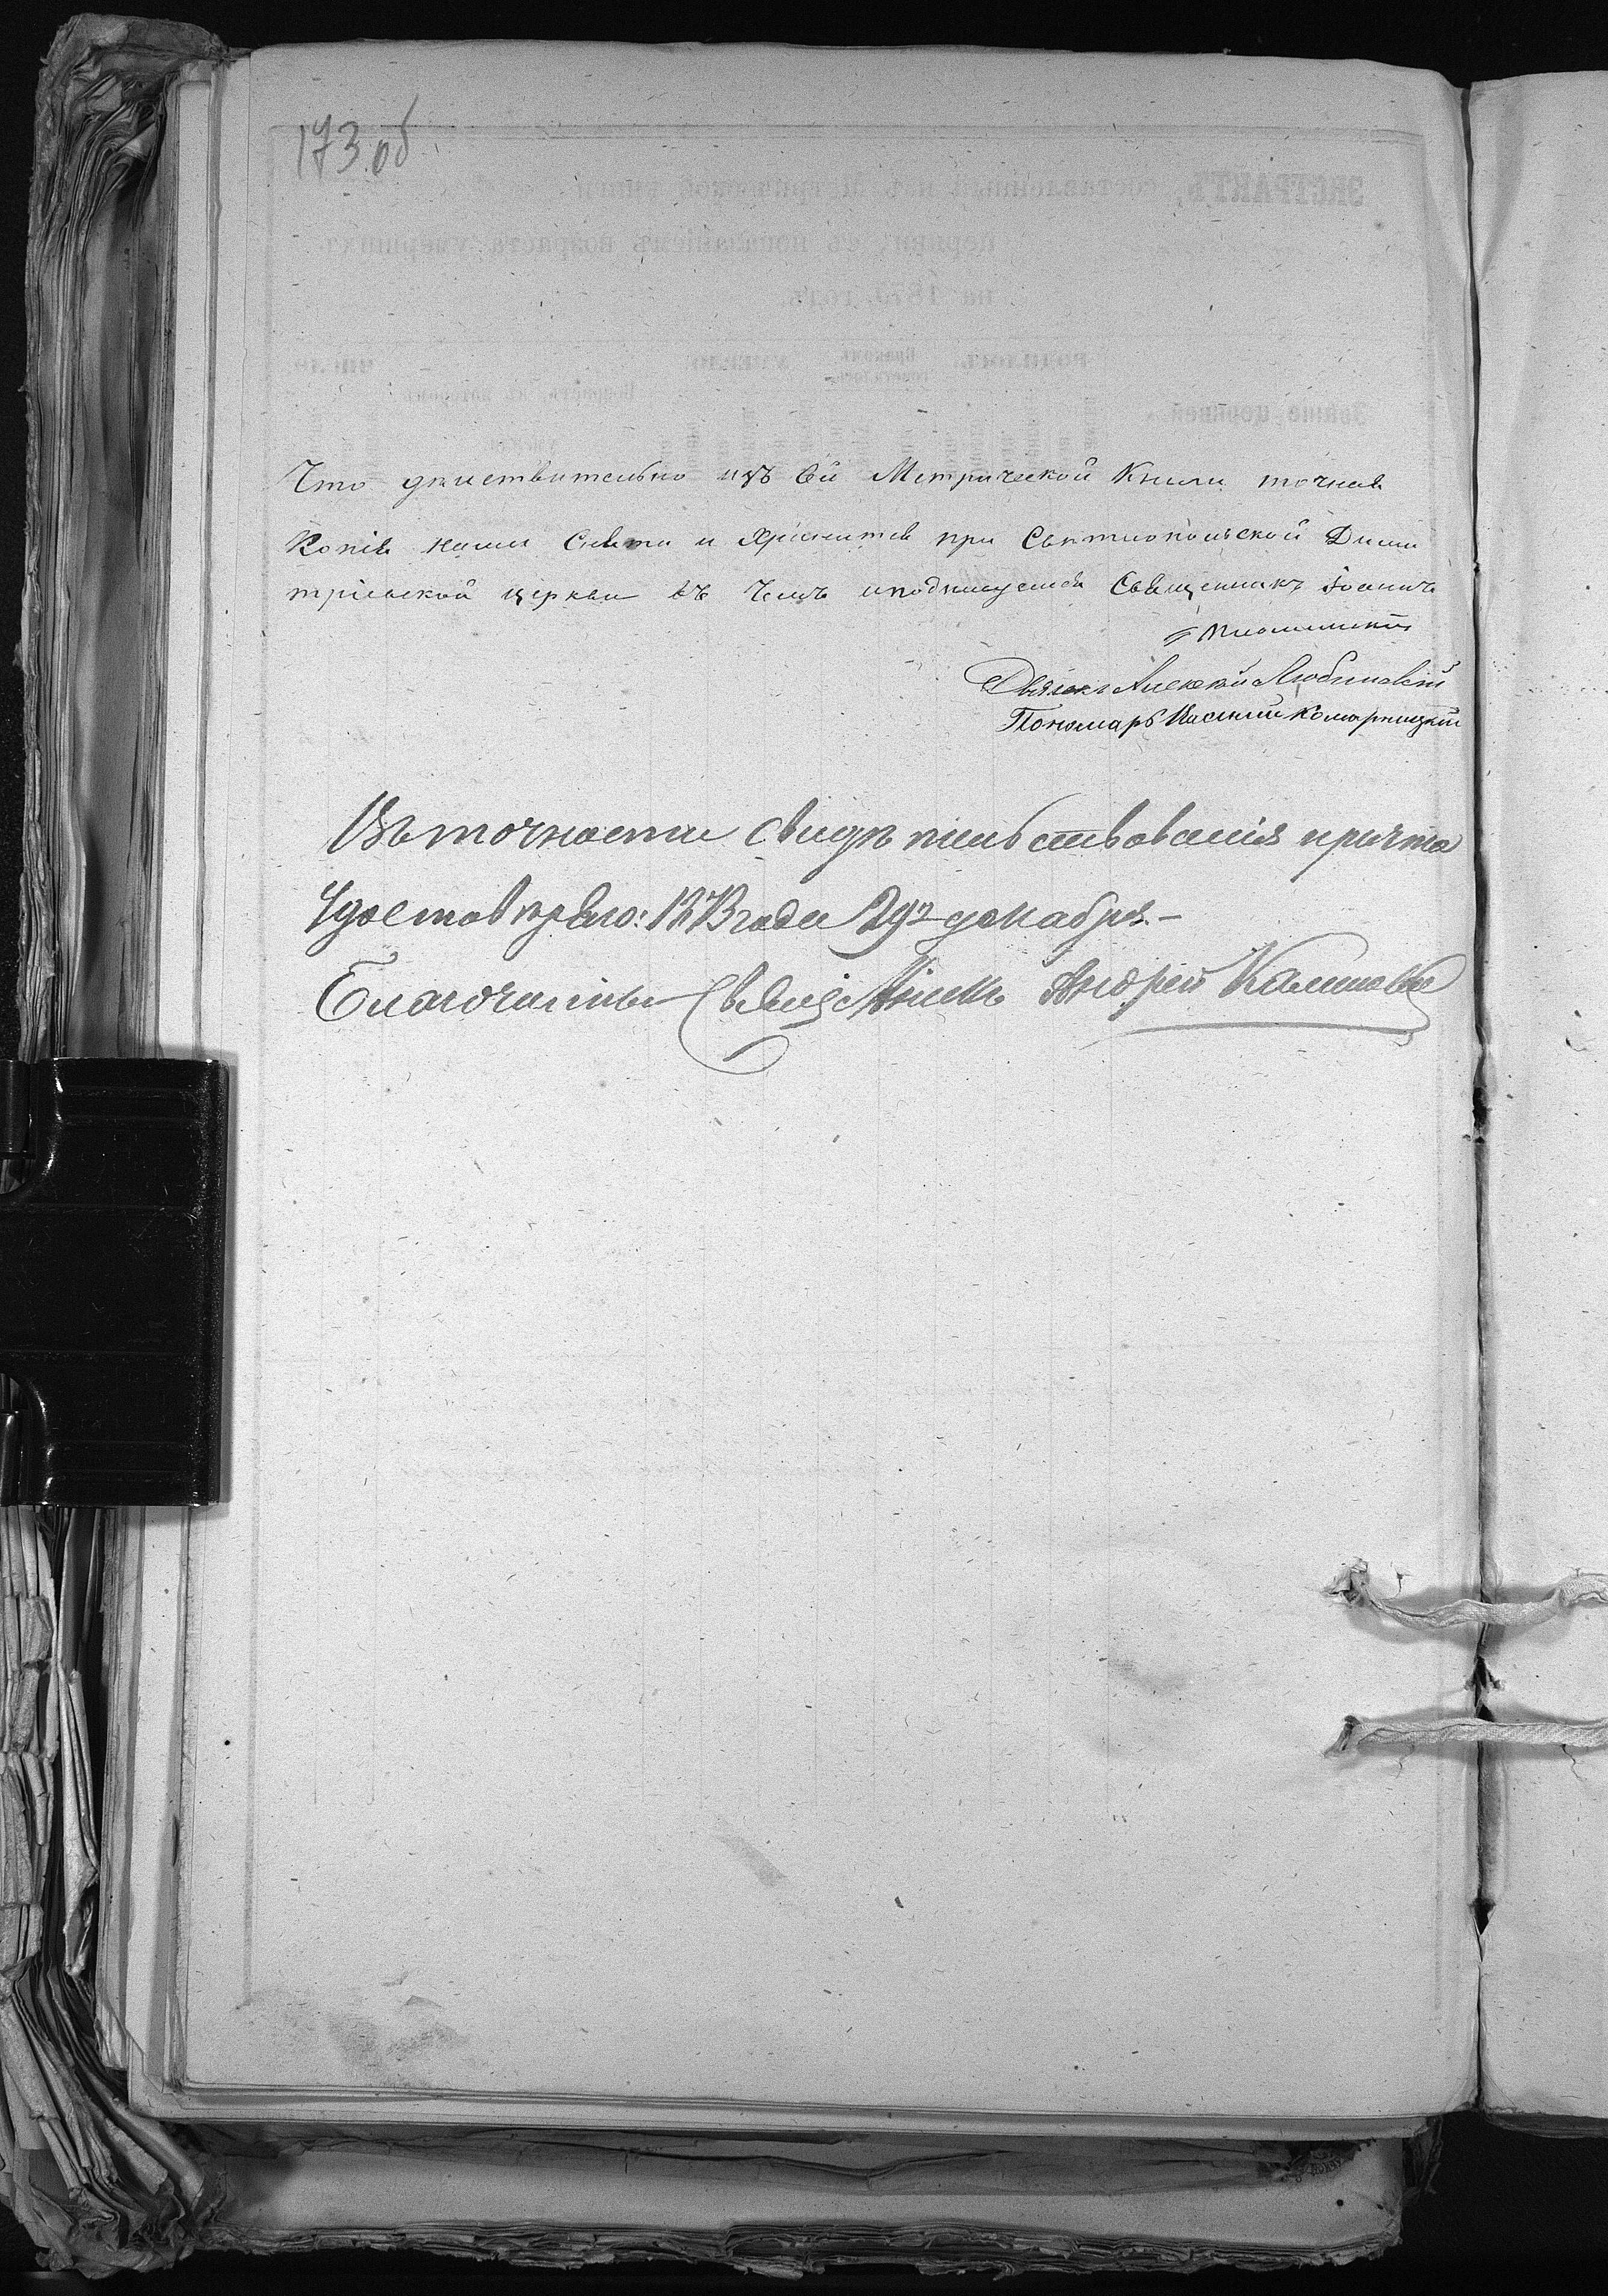 173 об
Что дѣйствительно изъ сей Метрической Книги точная
Копія нами снята и хранится при Святопольской Дими
тріевской церкви въ чемъ и подписуемся Священникъ Іоаннъ
Дьячекъ Алексѣй Любинскій
Пономарь Василій Комарницкій
Въ точности свидѣтельствованія причта
Удостовѣряю: 1873 года 29го декабря.—
Благочинный Священникъ Андрей